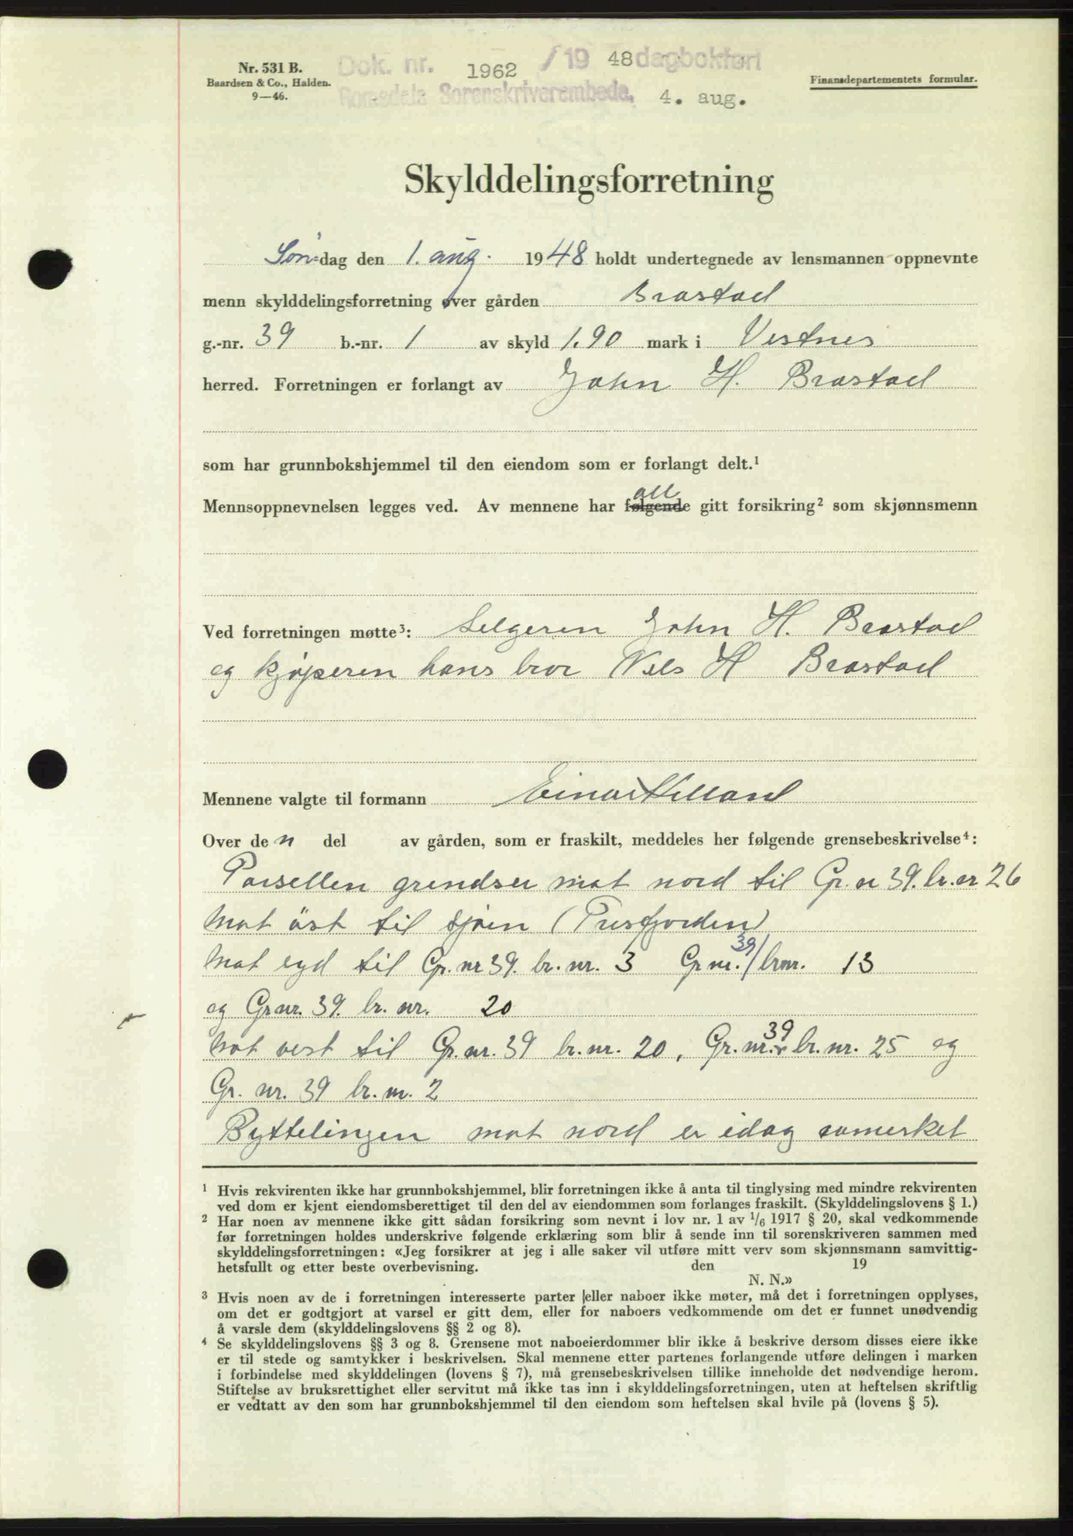 Nr. 531 B.
Baardsen & Co., Halden.
9—46.
Dok. nr. 1962 /19 48 dagbokført
Romsdals Sorenskriverembede, 4. aug.
Finansdepartementets formular.
Skylddelingsforretning
Søndag den 1. aug. 1948 holdt undertegnede av lensmannen oppnevnte
menn skylddelingsforretning over gården Brastad
g.-nr. 39 b.-nr. 1 av skyld 1.90 mark i Vestnes
herred. Forretningen er forlangt av John H. Brastad
som har grunnbokshjemmel til den eiendom som er forlangt delt.¹
all
Mennsoppnevnelsen legges ved. Av mennene har følgende gitt forsikring² som skjønnsmenn
Ved forretningen møtte³: Selgeren John H. Brastad
og kjøperen hans bror Nils H Brastad
Mennene valgte til formann Einar Killand
Over den del av gården, som er fraskilt, meddeles her følgende grensebeskrivelse⁴:
Parsellen grendser mot nord til Gr. nr 39. br. nr 26
Mot øst til sjøen (Tresfjorden)
Mot syd til Gr. nr 39. br. nr. 3 Gr nr. 39/ brnr. 13
og Gr nr. 39. br. nr. 20
Mot vest til Gr. nr. 39 br. nr. 20, Gr. nr. 39 br. nr. 25 og
Gr. nr. 39 br. nr. 2
Byttelingen mot nord er idag
¹ Hvis rekvirenten ikke har grunnbokshjemmel, blir forretningen ikke å anta til tinglysing med mindre rekvirenten
ved dom er kjent eiendomsberettiget til den del av eiendommen som forlanges fraskilt. (Skylddelingslovens § 1.)
² Har noen av mennene ikke gitt sådan forsikring som nevnt i lov nr. 1 av 1/6 1917 § 20, skal vedkommende
før forretningen holdes underskrive følgende erklæring som blir å sende inn til sorenskriveren sammen med
skylddelingsforretningen: «Jeg forsikrer at jeg i alle saker vil utføre mitt verv som skjønnsmann samvittig-
hetsfullt og etter beste overbevisning. den 19
N. N.»
³ Hvis noen av de i forretningen interesserte parter eller naboer ikke møter, må det i forretningen opplyses,
om det er godtgjort at varsel er gitt dem, eller for naboers vedkommende om det er funnet unødvendig
å varsle dem (skylddelingslovens §§ 2 og 8).
⁴ Se skylddelingslovens §§ 3 og 8. Grensene mot naboeierdommer blir ikke å beskrive dersom disses eiere ikke
er til stede og samtykker i beskrivelsen. Skal mennene etter partenes forlangende utføre delingen i marken
i forbindelse med skylddelingen (lovens § 7), må grensebeskrivelsen tillike inneholde det nødvendige herom.
Stiftelse av bruksrettighet eller servitut må ikke tas inn i skylddelingsforretningen, uten at heftelsen skriftlig
er vedtatt av den som har grunnbokshjemmel til den eiendom som heftelsen skal hvile på (lovens § 5).